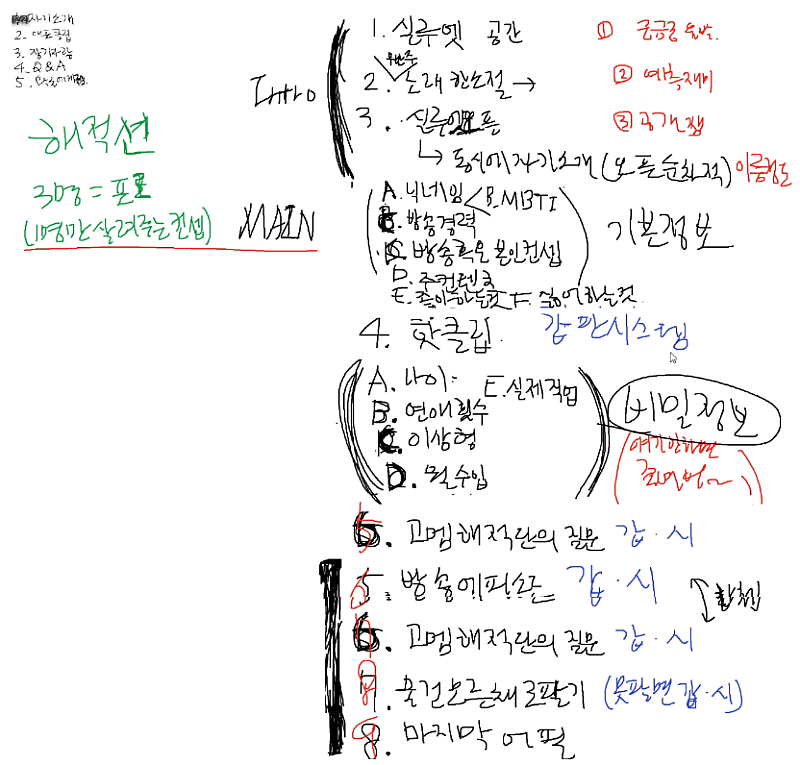 자기소개
2. 대표클립
3. 장기자랑
4. Q & A
5.
해적선
30명 =
(1명만 살려주는 컨셉)
Intro
1. 실루엣 공간
① 궁금증 유발
2. 노래 한소절 →
② 예측재미
3. 실루엣 오픈
③ 공개
↳ 동시에 자기소개 (오픈 순차적) 이름정도
MAIN
A. 닉네임 < B. MBTI
방송경력
C. 방송 혹은 본인컨셉
D. 주컨텐츠
E. 좋아하는것 F. 싫어하는것
기본정보
4. 핫클립
갑판시스템
A. 나이
E. 실제직업
B. 연애횟수
C. 이상형
D. 월수입
비밀정보
(얘기안하면
)
5. 고멤해적단의 질문 갑·시
방송에피소드 갑·시
합체
고멤해적단의 질문 갑·시
물건 모르는채로 팔기 (못팔면 갑·시)
마지막 어필